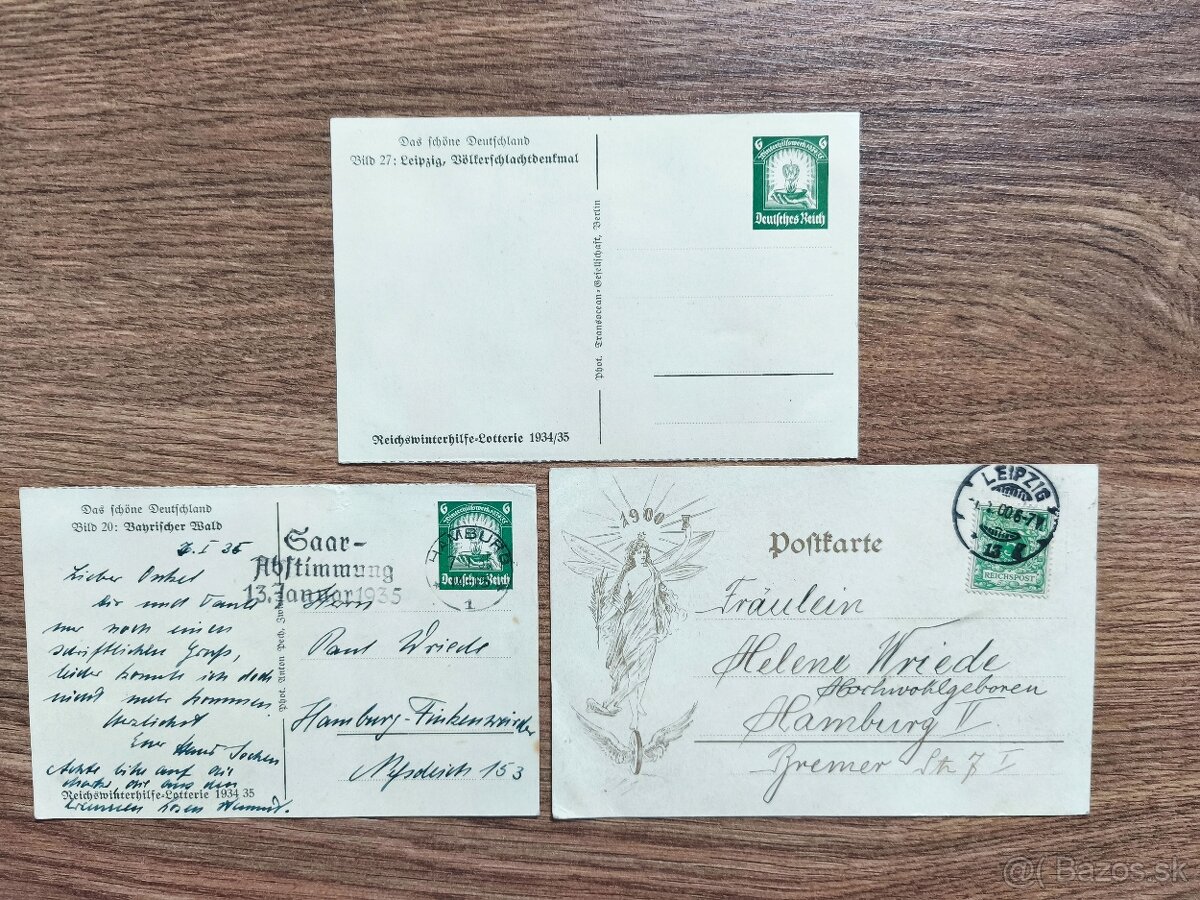 Das schöne Deutschland
Bild 27: Leipzig, Völkerschlachtdenkmal
6 6
Winterhilfswerk
Deutsches Reich
Phot. Transocean-Gesellschaft, Berlin
Reichswinterhilfe-Lotterie 1934/35
Das schöne Deutschland
Bild 20: Bayrischer Wald
7. I 35
Lieber Onkel
dir und Tante
nur noch einen
schriftlichen Gruß,
leider konnte ich doch
nicht mehr kommen
Herzlichst
Euer Hans Jochen
Achte bitte auf die
Reichswinterhilfe-Lotterie 1934/35
Phot. Anton Pech,
Saar-
Abstimmung
13. Januar 1935
6 6
Deutsches Reich
HAMBURG
1
Herrn
Paul Wriede
Hamburg-Finkenwärder
Nessdeich 153
1900
Postkarte
LEIPZIG
00.6-7
13
REICHSPOST
Fräulein
Helene Wriede
Hochwohlgeboren
Hamburg V.
Bremer Str 7 I
@( Bazos.sk